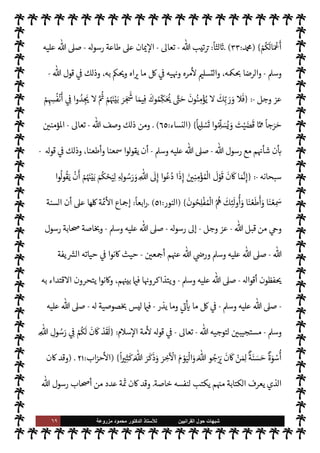 أَعْمَالَكُمْ} (محمد: ٣٣) .ثالثاً: ترتيب الله - تعالى - الإيمان على طاعة رسوله - صلى الله عليه
وسلم - والرضا بحكمه، والتسليم لأمره ونهيه في كل ما يراه ويحكم به، وذلك في قول الله -
عز وجل -: {فَلَا وَرَبِّكَ لَا يُؤْمِنُونَ حَتَّىٰ يُحَكِّمُوكَ فِيمَا شَجَرَ بَيْنَهُمْ ثُمَّ لَا يَجِدُوا فِي أَنْفُسِهِمْ
حَرَجًا مِمَّا قَضَيْتَ وَيُسَلِّمُوا تَسْلِيمًا} (النساء: ٦٥) . ومن ذلك وصف الله - تعالى - المؤمنين
بأن شأنهم مع رسول الله - صلى الله عليه وسلم - أن يقولوا سمعنا وأطعنا، وذلك في قوله -
سبحانه -: {إِنَّمَا كَانَ قَوْلَ الْمُؤْمِنِينَ إِذَا دُعُوا إِلَى اللَّهِ وَرَسُولِهِ لِيَحْكُمَ بَيْنَهُمْ أَنْ يَقُولُوا
سَمِعْنَا وَأَطَعْنَا وَأُولَٰئِكَ هُمُ الْمُفْلِحُونَ} (النور: ٥١) .رابعاً: إجماع الأمّة كلها على أن السنة
وحي من قبل الله - عز وجل - إلى رسوله - صلى الله عليه وسلم - وبخاصة صحابة رسول
الله - صلى الله عليه وسلم ورضي الله عنهم أجمعين - حيث كانوا في حياته الشريفة
يحفظون أقواله - صلى الله عليه وسلم - ويتذاكرونها فيما بينهم، وكانوا يتحرون الاقتداء به
- صلى الله عليه وسلم - في كل ما يأتي وما يذر - فيما ليس بخصوصية له - صلى الله عليه
وسلم - مستجيبين لتوجيه الله - تعالى - في قوله لأمة الإسلام: {لَقَدْ كَانَ لَكُمْ فِي رَسُولِ اللَّهِ
أُسْوَةٌ حَسَنَةٌ لِمَنْ كَانَ يَرْجُو اللَّهَ وَالْيَوْمَ الْآخِرَ وَذَكَرَ اللَّهَ كَثِيرًا} (الأحزاب: ٢١) . وقد كان
الذي يعرف الكتابة منهم يكتب لنفسه خاصة. وقد كان ثمة عدد من أصحاب رسول الله
شبهات حول القرانيين للأستاذ الدكتور محمود مزروعة ٦٩